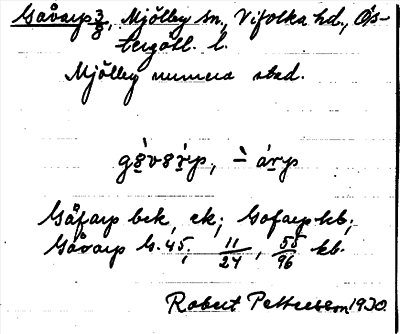 Gåvarp 3/8, Mjölby sn, Vifolka hd., Ös-
tergötl. l.
Mjölby numera stad.
Gåfarp bck, ck; Gofarp kb;
Gåvarp G. 45, 11/24, 55/96 kb.
Robert Pettersson 1930.